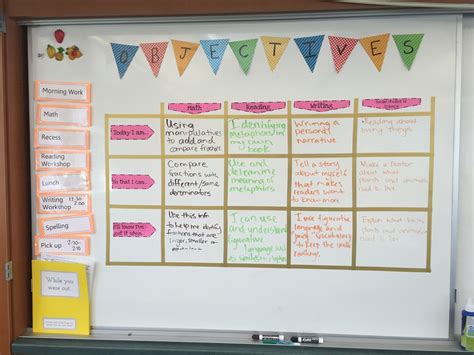 OBJECTIVES
Morning Work
Math
Recess
Reading
Workshop
Lunch
Writing 1:20
Workshop 2:00
Spelling
Pick up 2:30
While you
were out..
Math
Reading
Writing
Today I am...
Using
manipulatives
to add and
compare
I identifying
metaphors in
my
book
Writing a
personal
narrative.
Reading about
living things
So that I can...
Compare
fractions with
different/same
denominators
Use and
determine
meaning of
metaphors
Tell a story
about myself
that makes
readers want
to know more
Make a Poster
about what
plants and
animals
need to live
I'll know I've
got it when...
Use this info
to help me identify
fractions that are
larger, smaller or
I can use
and understand
figurative
language such
as
I use figurative
language and
vocabulary
to keep the
Explain what
plants and
animals need
to live.